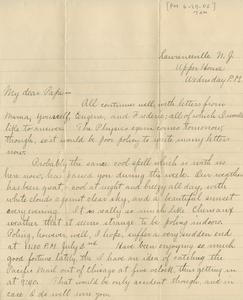 [PM 6-29-05]
7 AM
Lawrenceville N.J.
Upper House
Wednesday P.M.
My dear Papa:-
All continues well, with letters from
Mama, yourself, Eugene, and Frederic; all of which I would
like to answer. The Physics exam comes tomorrow,
though, so it would be poor policy to write many letters
now.
Probably the same cool spell which is with us
here now, has paid you during the week. Our weather
has been great; cool at night and breezy all day, with
white clouds against clear sky, and a beautiful sunset
every evening. It is really so much like
weather that it seems strange to be indoors.
, however, will, I hope, suffer a very sudden end
at 4:00 P.M. July 2nd. Have been enjoying so much
good fortune lately, that I have an idea of catching the
Pacific Mail out of Chicago at five o'clock, thus getting in
at 9:40. That would be only accident though, and in
case I do will wire you.